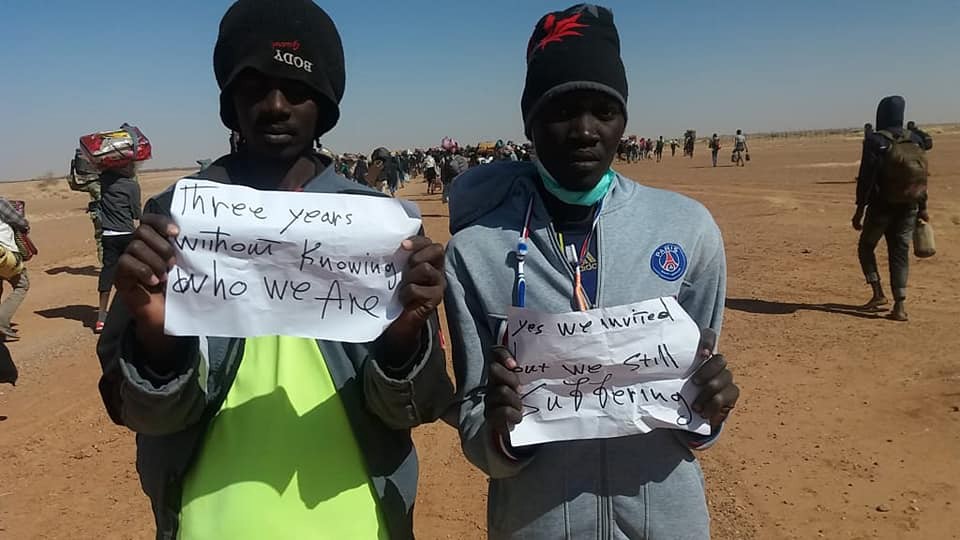 BODY
Guard
Three years
without Knowing
Who we Are
adidas
PARIS
yes we invited
but we still
suffering